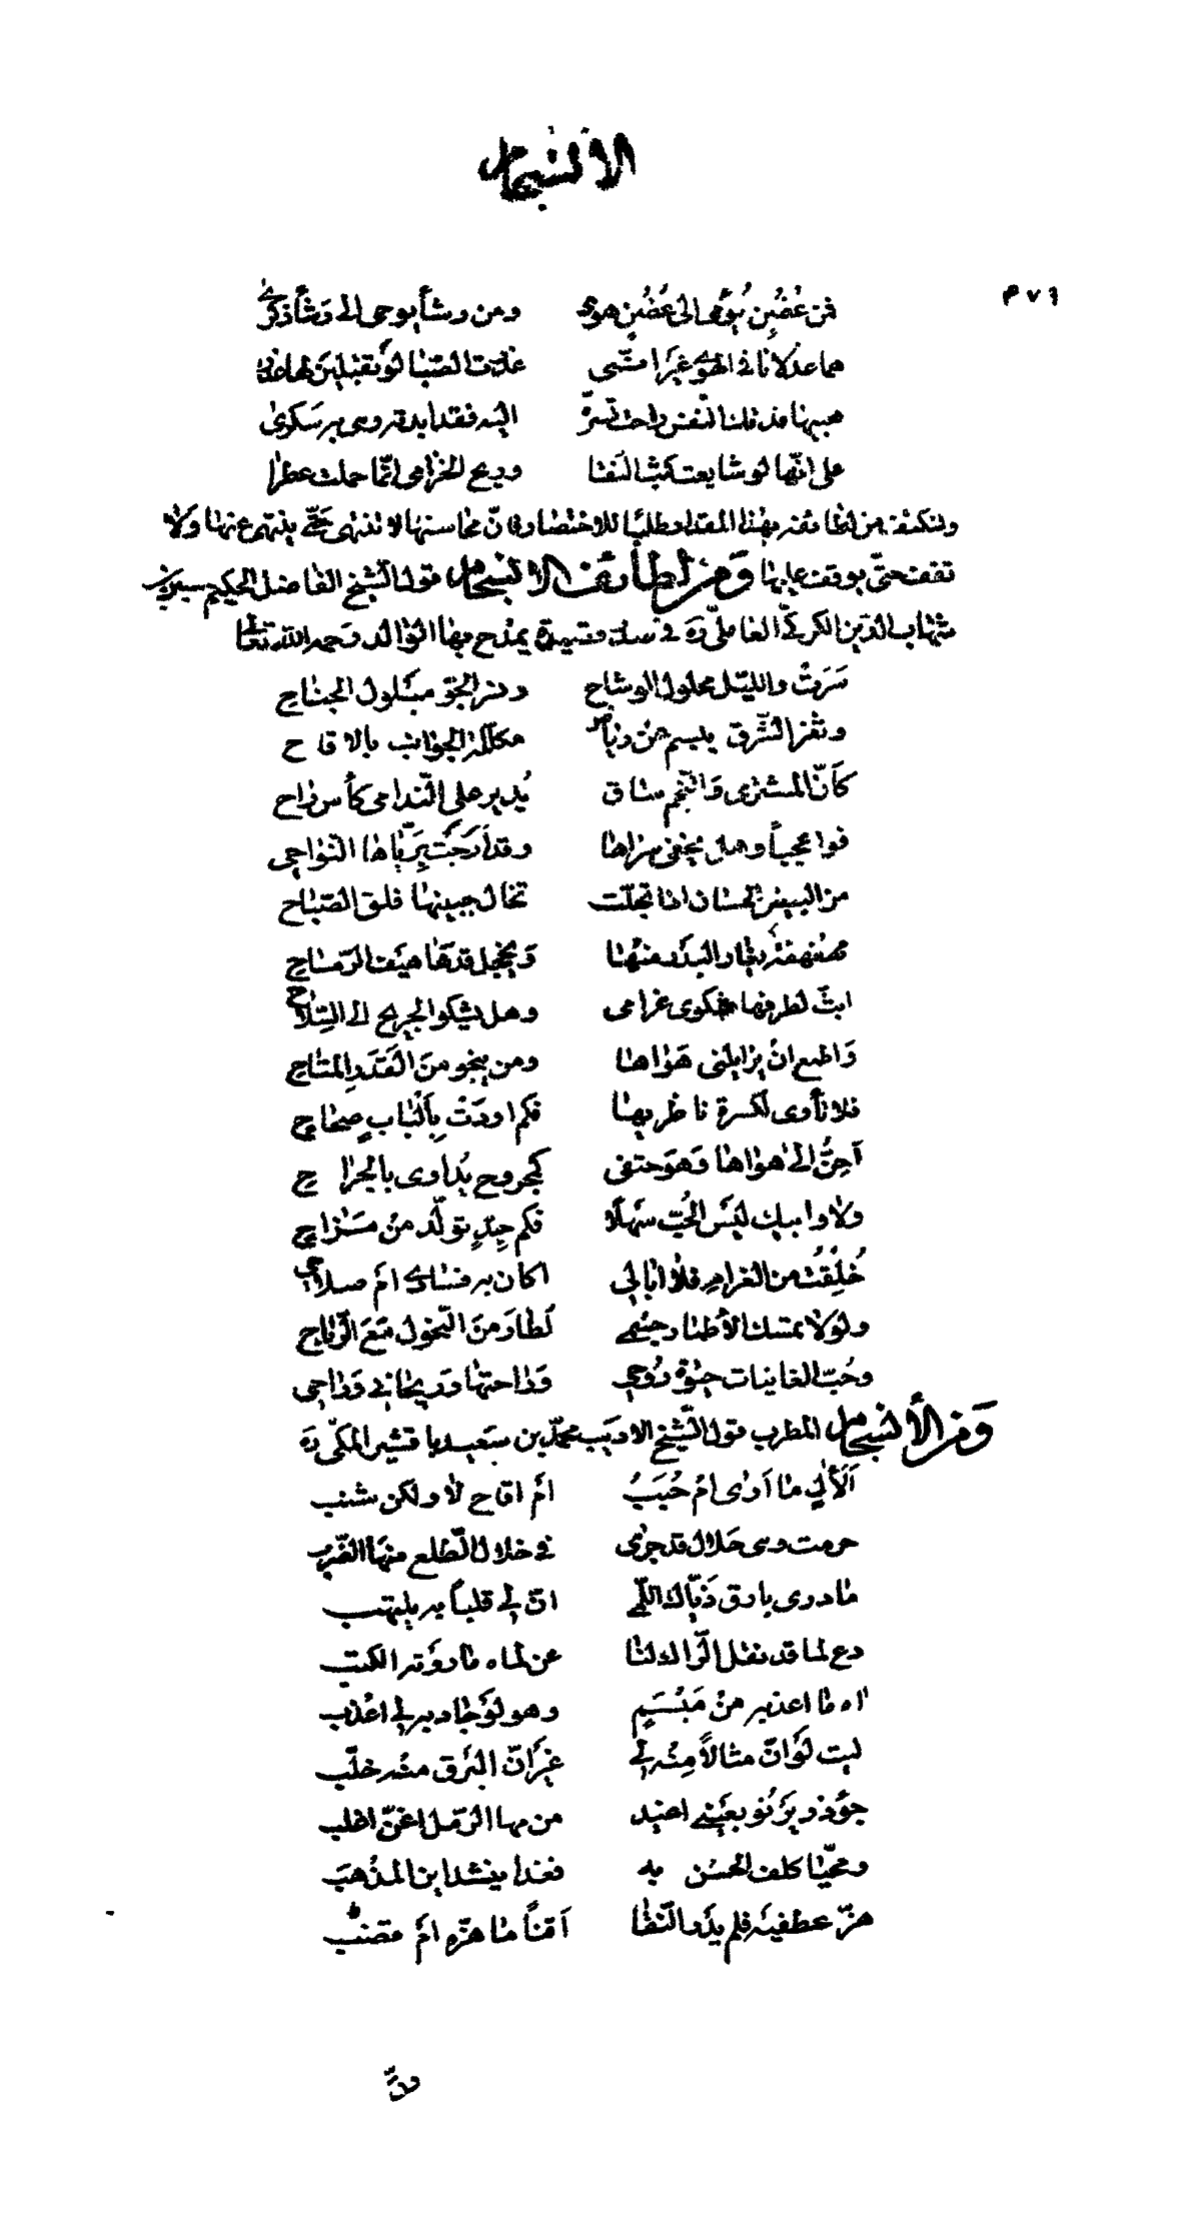 الانسجام
٢٧٦
فمن غُصُنٍ يُومى الى غُصُنٍ هوى ومن رشأ يوحى الى رشأ ذكرى
هما عذلانا فى الهوى غير انني عذرت الصبا لو تقبلين لها عذرا
هبيها فدتك النفس راحت تسرّه اليه فقد ابدته وهى به سكرى
على انّها لو شايعت كثب النقا وريح الخزامى انّما حملت عطرا
ولنكتف من لطائفه بهذا المقدار طلبًا للاختصار فانّ محاسنها لا تنتهى حتّى ينتهى عنها ولا
تقف حتّى يوقف عليها ومن لطائف الانسجام قول الشيخ الفاضل الحكيم حسين بن
شهاب الدين الكركىّ العاملىّ ره فى قصيدة يمدح بها الوالد رحمه الله تعالى
سَرَتْ والليل محلول الوشاح ونسر الجوّ مبلول الجناح
وثغر الشّرق يبسم عن رياض مكلّلة الجوانب بالاقاح
كأنّ المشترى والنّجم ساق يُدير على النّدامى كأس راح
فوا عجباً وهل يخفى سراها وقد أرجت بريّاها النّواحى
من البيض الحسان اذا تجلّت تخال جبينها فلق الصّباح
مهفهفة يغار البدر منها ويخجل قدّها هيف الرّماح
ابثّ لطرفها شكوى غرامى وهل يشكو الجريح الى السّلاح
واطمع ان يزايلنى هواها ومن ينجو من القَدَر المتاح
فلا تأوى لكسرة ناظريها فكم اودت بألباب صحاح
أحِنُّ الى هواها وهو حتفى كمجروح يُداوى بالجراح
ولا وابيك ليس الحُبّ سهلا فكم جِدٍّ تولّد من مزاح
خُلِقْتُ من الغرام فلا ابالى اكان به فسادى ام صلاحى
ولولا تمسك الأطمار جسمى لطار من النّحول مع الرّياح
وحُبّ الغانيات حيوة روحى وراحتها وريحانى وراحى
ومن الأنسجام المطرب قول الشّيخ الاديب محمّد بن سعيد باقشير المكّى ره
ألآلي ما أرى ام حَبَبُ ام اقاح لا ولكن شنب
حرمت وهى حلال قد جرى فى خلال الطّلع منها الضّرب
ما درى بارق ذيّاك اللّمى انّ لى قلباً به يلتهب
دع لما قد نقل الرّاوى لنا عن لماه ما روته الكتب
اه ما اعذبه من مَبْسَمٍ وهو لو جاد به لى اعذب
ليت لو انّ مثالاً منه لى غير انّ البرق منه خلّب
جؤذر يرنو بعيني اغيد من مها الرّمل اغنّ اغلب
ومحيّا كلف الحسن به فغدا ينشد اين المذهب
هزّ عطفيه فلم يدر النّقا أقناً ما هزّه ام قضب